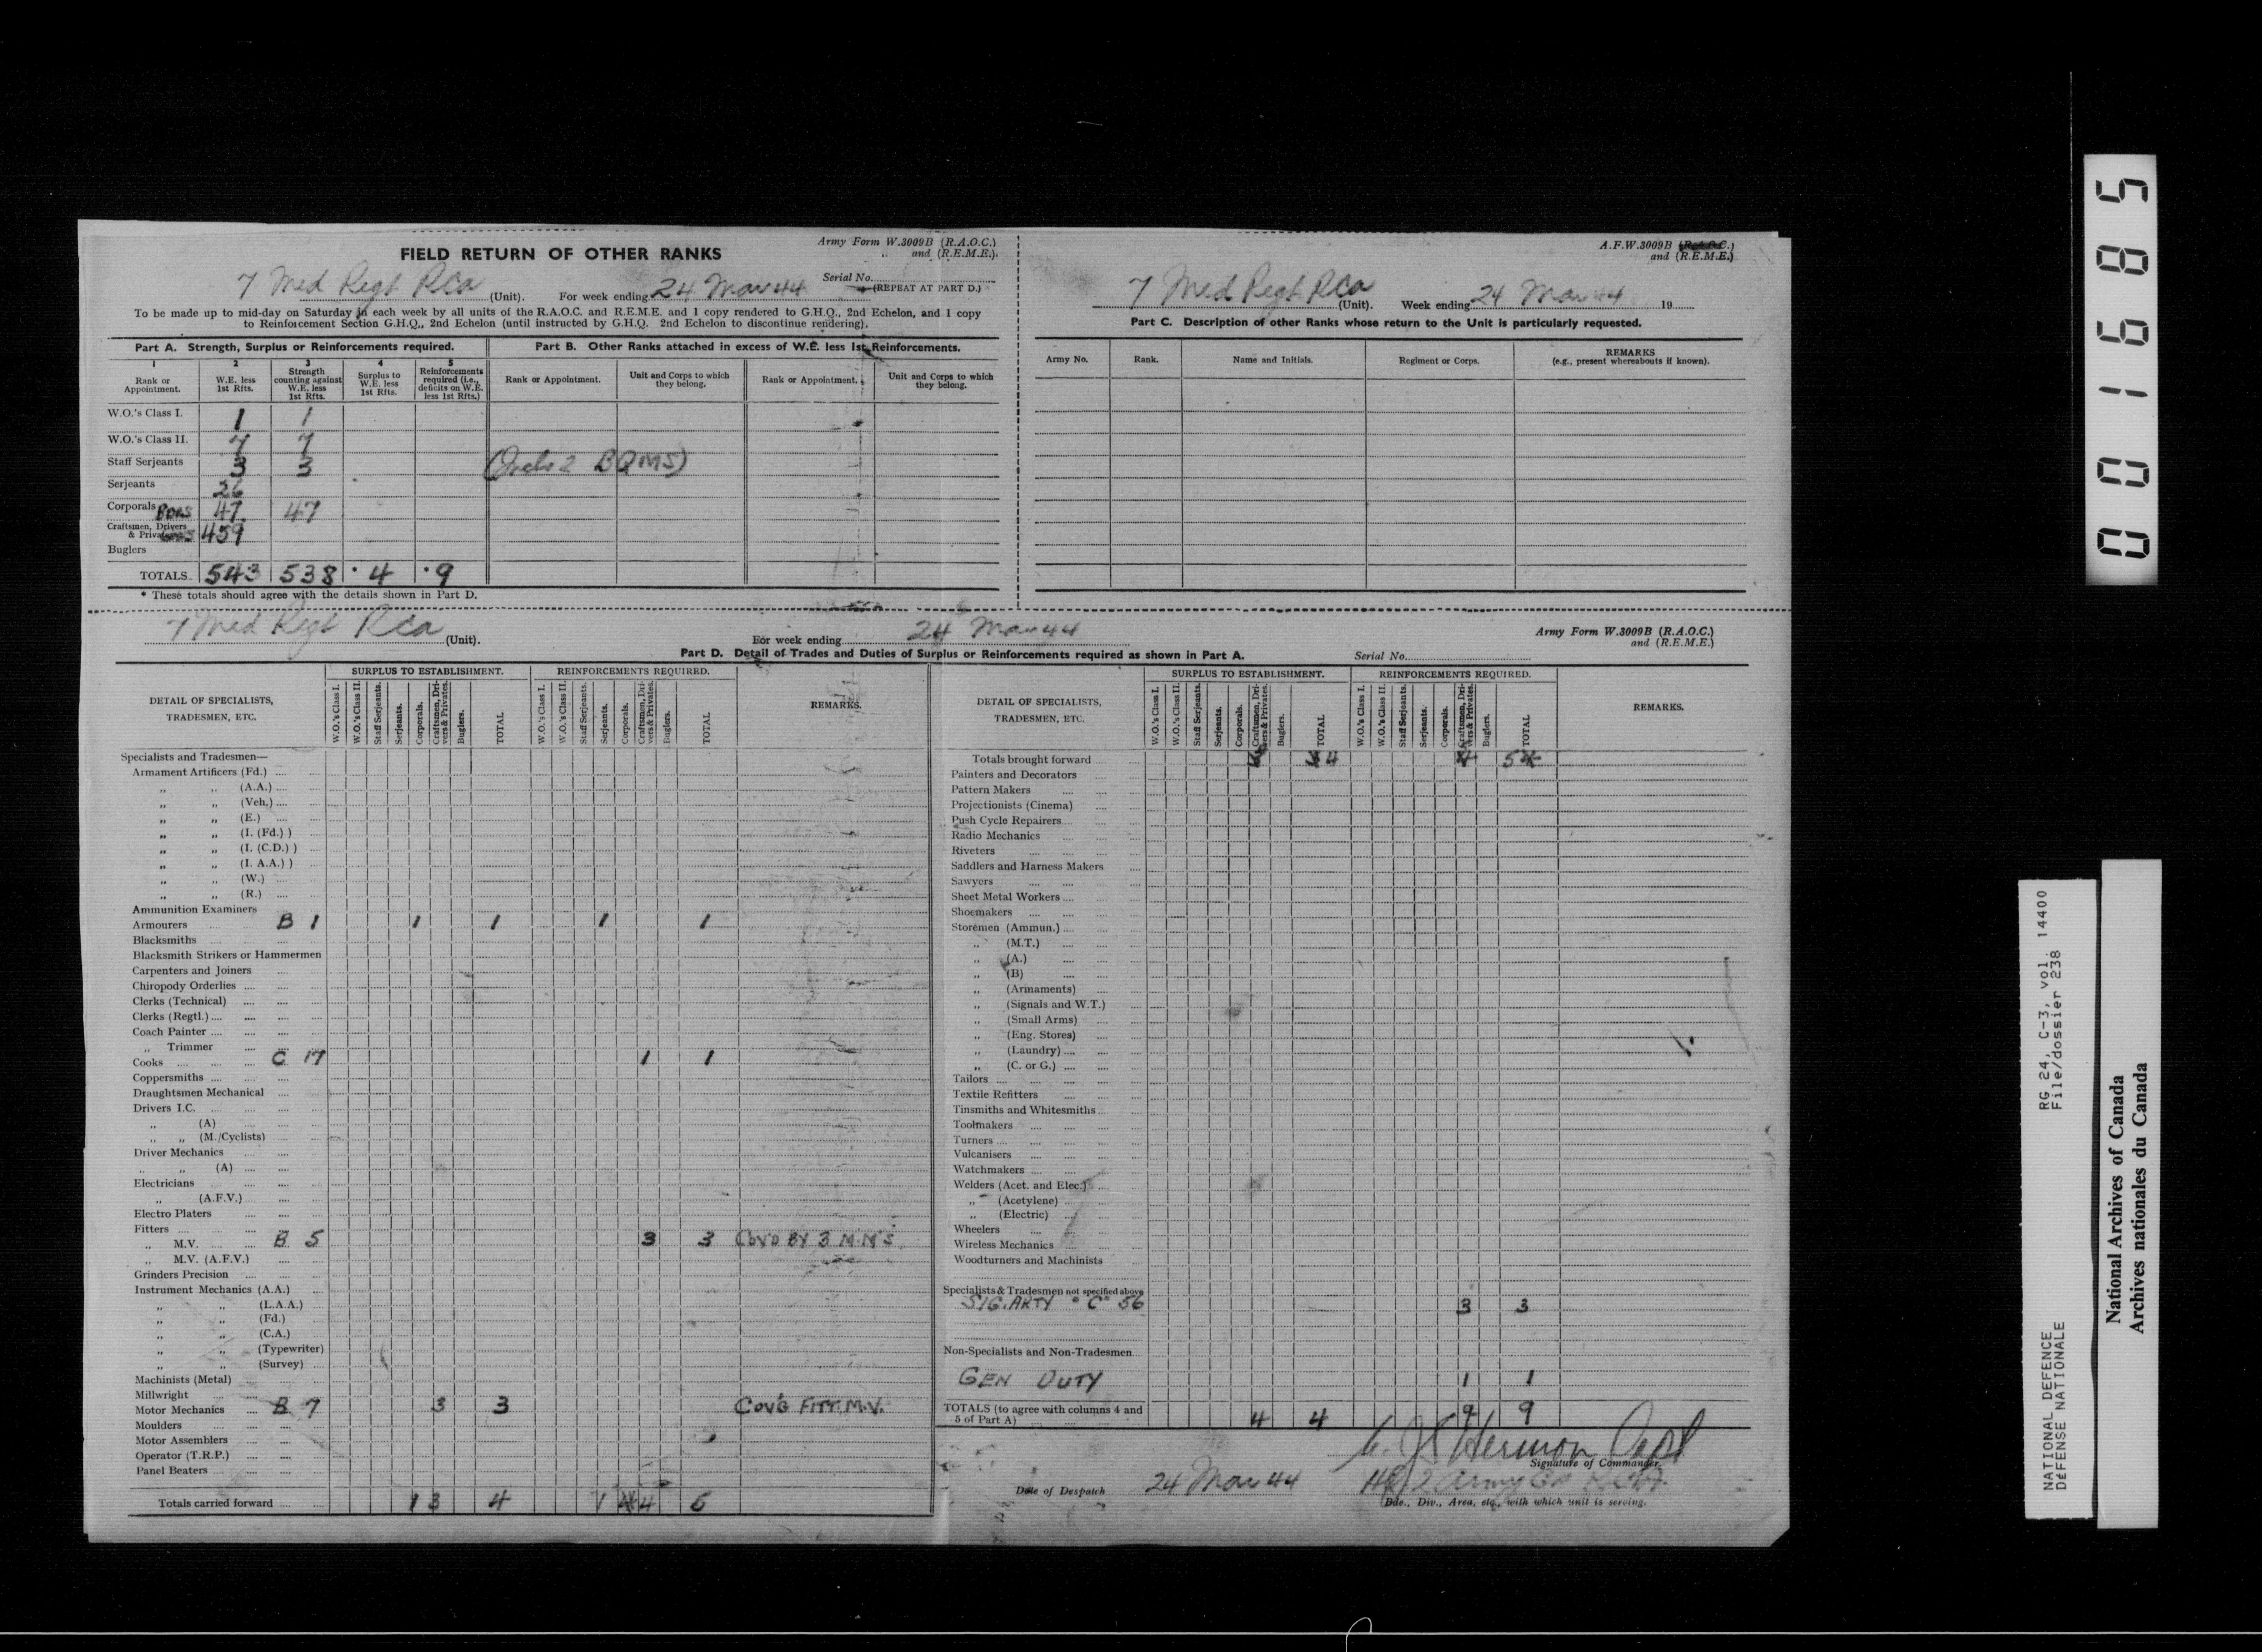 FIELD RETURN OF OTHER RANKS
Army Form W.3009B (R.A.O.C.)
„ and (R.E.M.E.).
7 Med Regt RCA (Unit). For week ending 24 Mar 44
Serial No.
(REPEAT AT PART D.)
To be made up to mid-day on Saturday in each week by all units of the R.A.O.C. and R.E.M.E. and 1 copy rendered to G.H.Q., 2nd Echelon, and 1 copy
to Reinforcement Section G.H.Q., 2nd Echelon (until instructed by G.H.Q. 2nd Echelon to discontinue rendering).
Part A. Strength, Surplus or Reinforcements required.
Part B. Other Ranks attached in excess of W.E. less 1st Reinforcements.
1 2 3 4 5
Rank or Appointment. W.E. less 1st Rfts. Strength counting against W.E. less 1st Rfts. Surplus to W.E. less 1st Rfts. Reinforcements required (i.e., deficits on W.E. less 1st Rfts.)
Rank or Appointment. Unit and Corps to which they belong. Rank or Appointment. Unit and Corps to which they belong.
W.O.'s Class I. 1 1
W.O.'s Class II. 7 7
Staff Serjeants 3 3 2 BQMS)
Serjeants 26
Corporals BDRS 47 47
Craftsmen, Drivers & Privates 459
Buglers
TOTALS 543 538 4 9
* These totals should agree with the details shown in Part D.
A.F.W.3009B (R.A.O.C.)
and (R.E.M.E.)
7 Med Regt RCA (Unit). Week ending 24 Mar 44 19
Part C. Description of other Ranks whose return to the Unit is particularly requested.
Army No. Rank. Name and Initials. Regiment or Corps. REMARKS (e.g., present whereabouts if known).
7 Med Regt RCA (Unit). For week ending 24 Mar 44
Army Form W.3009B (R.A.O.C.)
and (R.E.M.E.)
Part D. Detail of Trades and Duties of Surplus or Reinforcements required as shown in Part A. Serial No.
DETAIL OF SPECIALISTS, TRADESMEN, ETC.
SURPLUS TO ESTABLISHMENT.
W.O.'s Class I. W.O.'s Class II. Staff Serjeants. Serjeants. Corporals. Craftsmen, Drivers & Privates. Buglers. TOTAL
REINFORCEMENTS REQUIRED.
W.O.'s Class I. W.O.'s Class II. Staff Serjeants. Serjeants. Corporals. Craftsmen, Drivers & Privates. Buglers. TOTAL
REMARKS.
Specialists and Tradesmen—
Armament Artificers (Fd.)
„ „ (A.A.)
„ „ (Veh.)
„ „ (E.)
„ „ (I. (Fd.) )
„ „ (I. (C.D.) )
„ „ (I. A.A.) )
„ „ (W.)
„ „ (R.)
Ammunition Examiners
Armourers B 1 1 1 1 1
Blacksmiths
Blacksmith Strikers or Hammermen
Carpenters and Joiners
Chiropody Orderlies
Clerks (Technical)
Clerks (Regtl.)
Coach Painter
„ Trimmer
Cooks C 17 1 1
Coppersmiths
Draughtsmen Mechanical
Drivers I.C.
„ (A)
„ „ (M./Cyclists)
Driver Mechanics
„ „ (A)
Electricians
„ (A.F.V.)
Electro Platers
Fitters
„ M.V. B 5 3 3 COV'D BY 3 M.M'S
„ M.V. (A.F.V.)
Grinders Precision
Instrument Mechanics (A.A.)
„ „ (L.A.A.)
„ „ (Fd.)
„ „ (C.A.)
„ „ (Typewriter)
„ „ (Survey)
Machinists (Metal)
Millwright
Motor Mechanics B 7 3 3 COV'G FITT. M.V.
Moulders
Motor Assemblers
Operator (T.R.P.)
Panel Beaters
Totals carried forward 1 3 4 1 4 5
DETAIL OF SPECIALISTS, TRADESMEN, ETC.
SURPLUS TO ESTABLISHMENT.
W.O.'s Class I. W.O.'s Class II. Staff Serjeants. Serjeants. Corporals. Craftsmen, Drivers & Privates. Buglers. TOTAL
REINFORCEMENTS REQUIRED.
W.O.'s Class I. W.O.'s Class II. Staff Serjeants. Serjeants. Corporals. Craftsmen, Drivers & Privates. Buglers. TOTAL
REMARKS.
Totals brought forward 4 5
Painters and Decorators
Pattern Makers
Projectionists (Cinema)
Push Cycle Repairers
Radio Mechanics
Riveters
Saddlers and Harness Makers
Sawyers
Sheet Metal Workers
Shoemakers
Storemen (Ammun.)
„ (M.T.)
„ (A.)
„ (B)
„ (Armaments)
„ (Signals and W.T.)
„ (Small Arms)
„ (Eng. Stores)
„ (Laundry)
„ (C. or G.)
Tailors
Textile Refitters
Tinsmiths and Whitesmiths
Toolmakers
Turners
Vulcanisers
Watchmakers
Welders (Acet. and Elec.)
„ (Acetylene)
„ (Electric)
Wheelers
Wireless Mechanics
Woodturners and Machinists
Specialists & Tradesmen not specified above
SIG. ARTY "C" 56 3 3
Non-Specialists and Non-Tradesmen
GEN DUTY 1 1
TOTALS (to agree with columns 4 and 5 of Part A) 4 4 9 9
Hermon Capt
Signature of Commander.
Date of Despatch 24 Mar 44 HQ 2 Army Gp RCA.
Bde., Div., Area, etc., with which unit is serving.
001685
RG 24, C-3, vol. 14400
File/dossier 238
NATIONAL DEFENCE
DÉFENSE NATIONALE
National Archives of Canada
Archives nationales du Canada